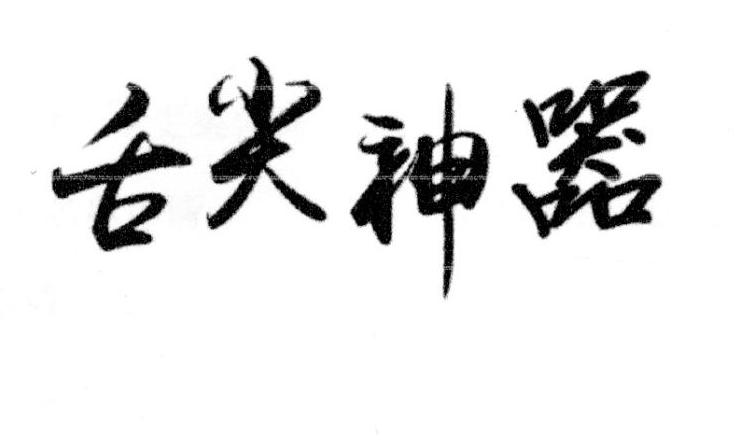 舌尖神器